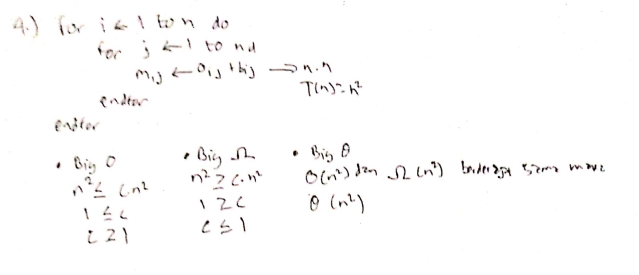 4.) for i ← 1 to n do
for j ← 1 to n d
mij ← aij + bij → n.n
T(n) = n²
endfor
endfor
• Big O
n² ≤ C.n²
1 ≤ C
C ≥ 1
• Big Ω
n² ≥ C.n²
1 ≥ C
C ≤ 1
• Big θ
O(n²) dan Ω(n²) berderajat sama maka
θ(n²)